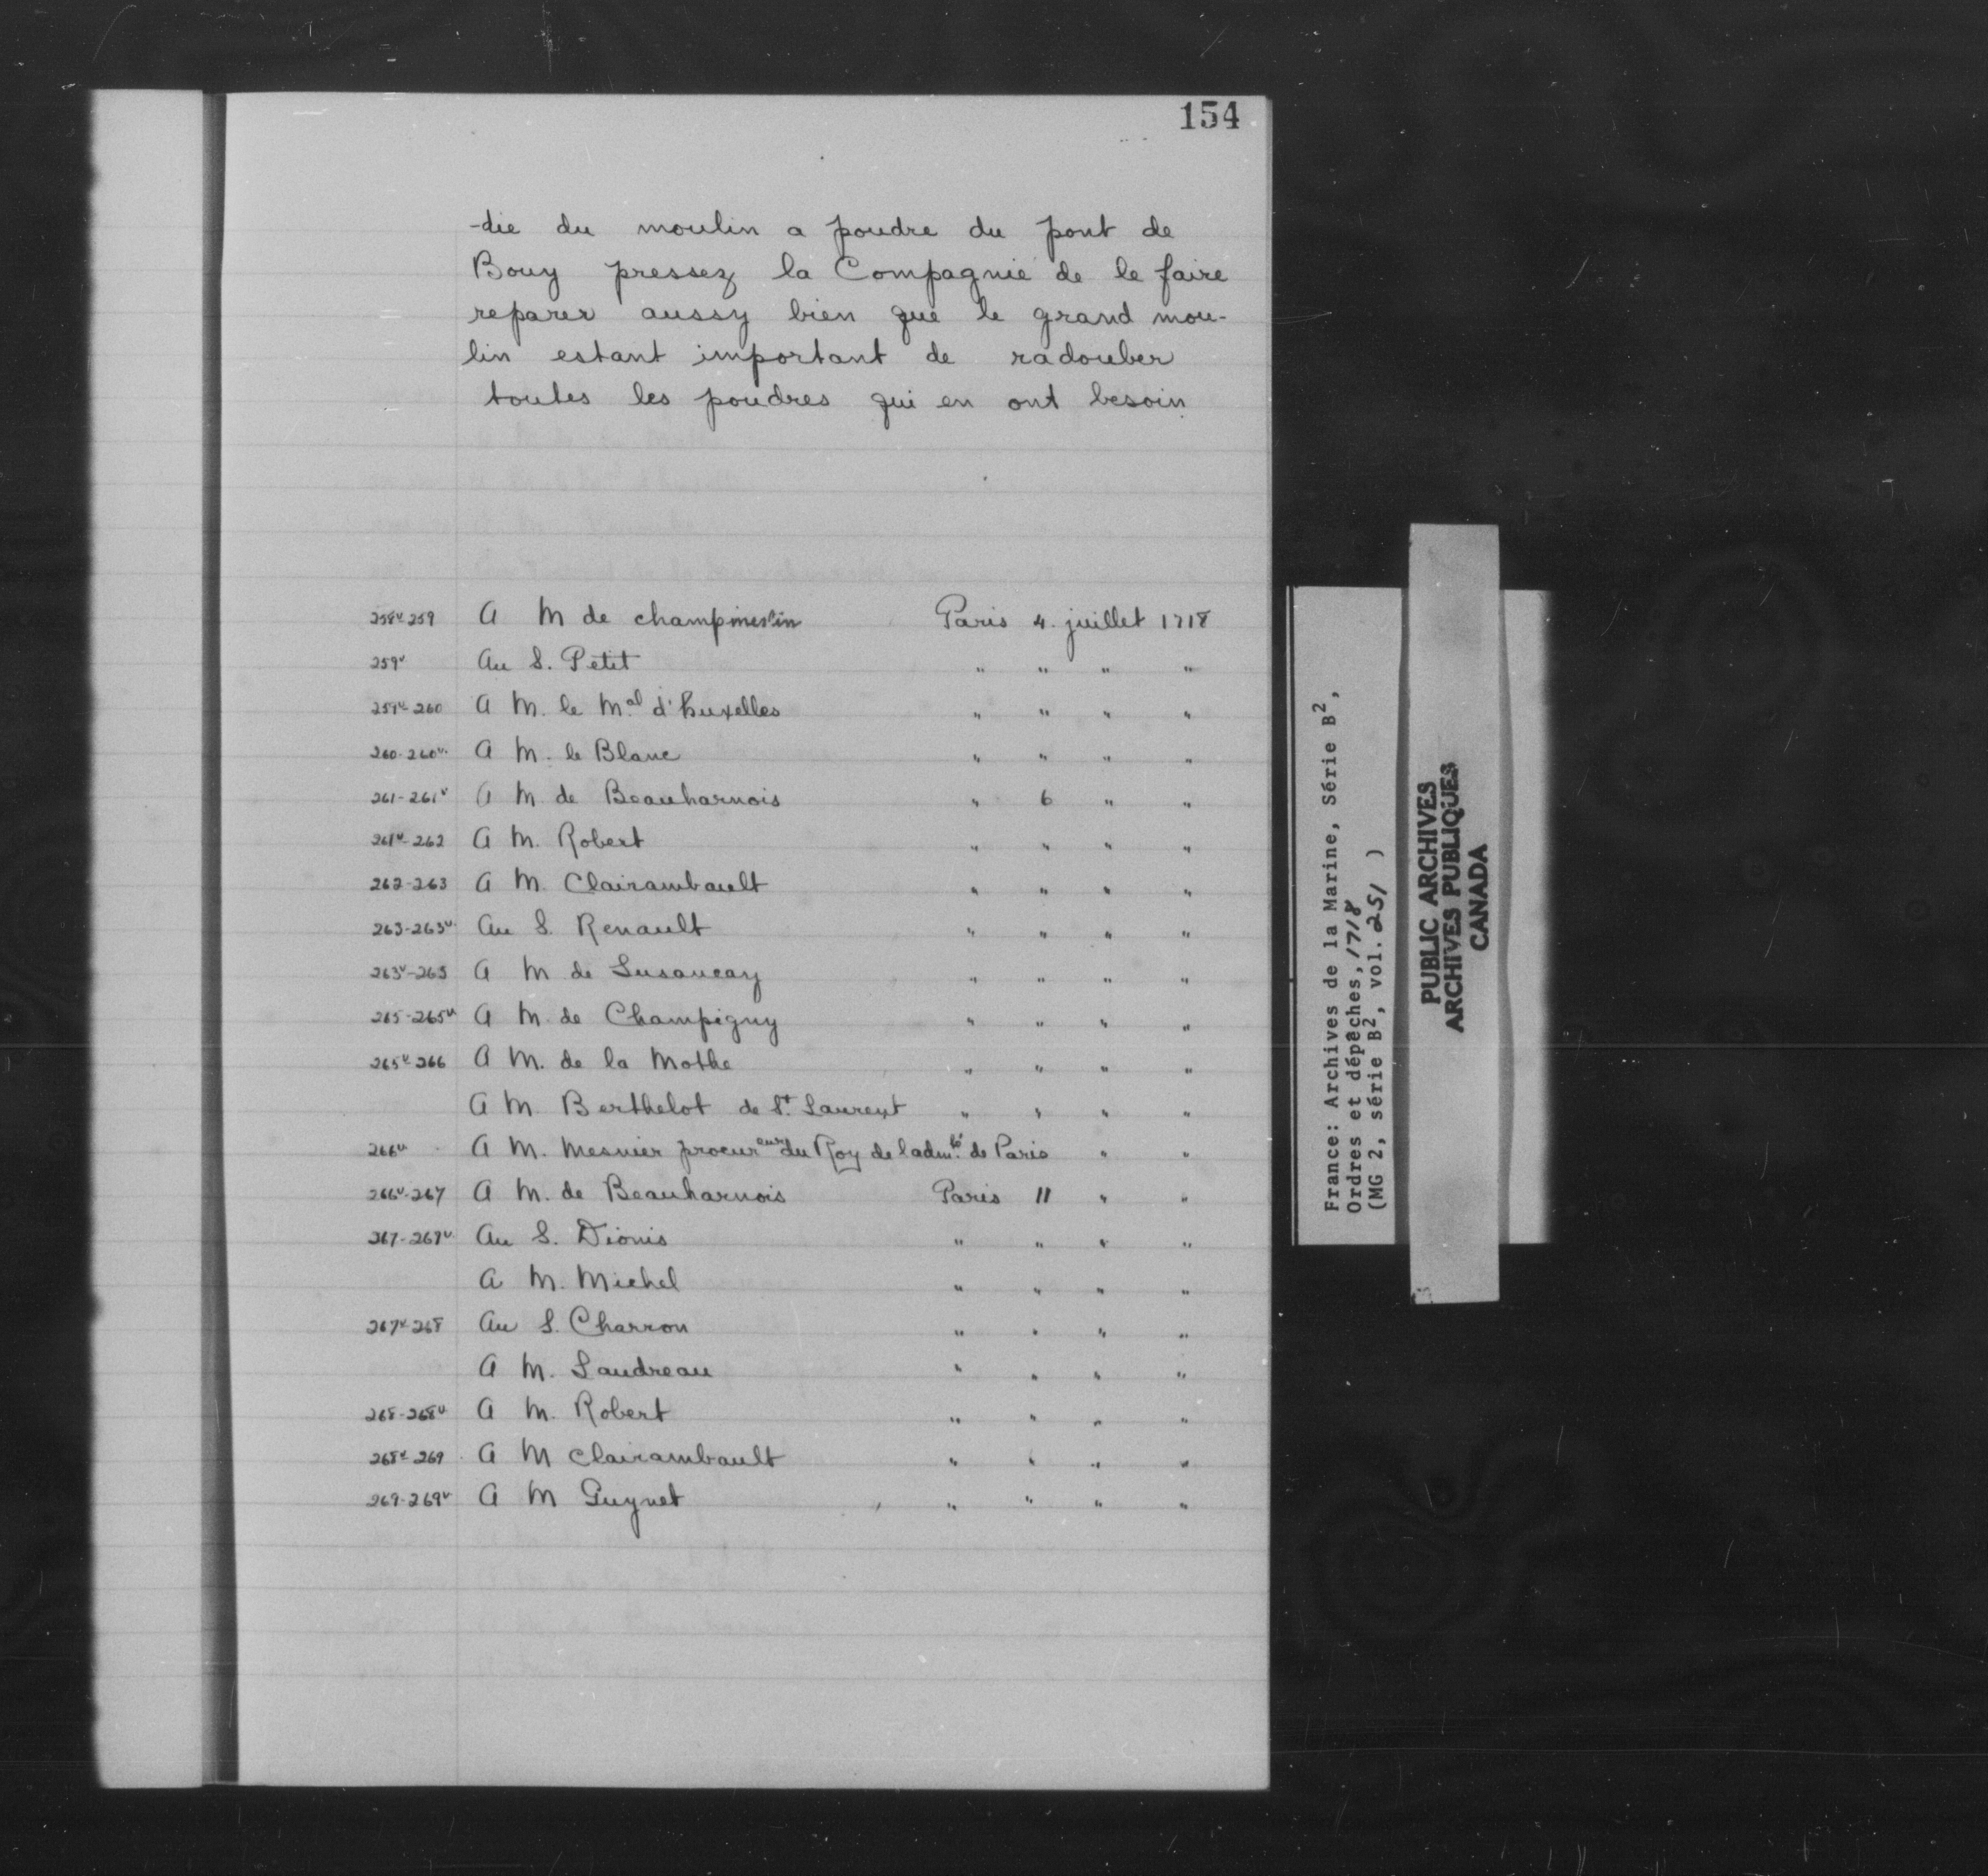 154
-die du moulin a poudre du pont de
Bouy pressez la Compagnie de le faire
reparer aussy bien que le grand mou-
lin estant important de radouber
toutes les poudres qui en ont besoin
258v-259 A M de champmeslin Paris 4. juillet 1718
259v Au S. Petit " " " "
259v-260 A M. le Mal d'huxelles " " " "
260-260v. A M. le Blanc " " " "
261-261v A M. de Beauharnois " 6 " "
261v-262 A M. Robert " " " "
262-263 A M. Clairambault " " " "
263-263v. Au S. Renault " " " "
263v-265 A M de Lusancay " " " "
265-265v A M. de Champigny " " " "
265v-266 A M. de la Mothe " " " "
A M. Berthelot de St. Laurent " " " "
266v A M. Mesnier procureur du Roy de ladmté. de Paris " "
266v-267 A M. de Beauharnois Paris 11 " "
267-267v. Au S. Dionis " " " "
A M. Michel " " " "
267v-268 Au S. Charron " " " "
A M. Landreau " " " "
268-268v A M. Robert " " " "
268v-269 A M Clairambault " " " "
269-269v A M Guynet " " " "
France: Archives de la Marine, Série B2,
Ordres et dépêches, 1718
(MG 2, série B2, vol. 251 )
PUBLIC ARCHIVES
ARCHIVES PUBLIQUES
CANADA